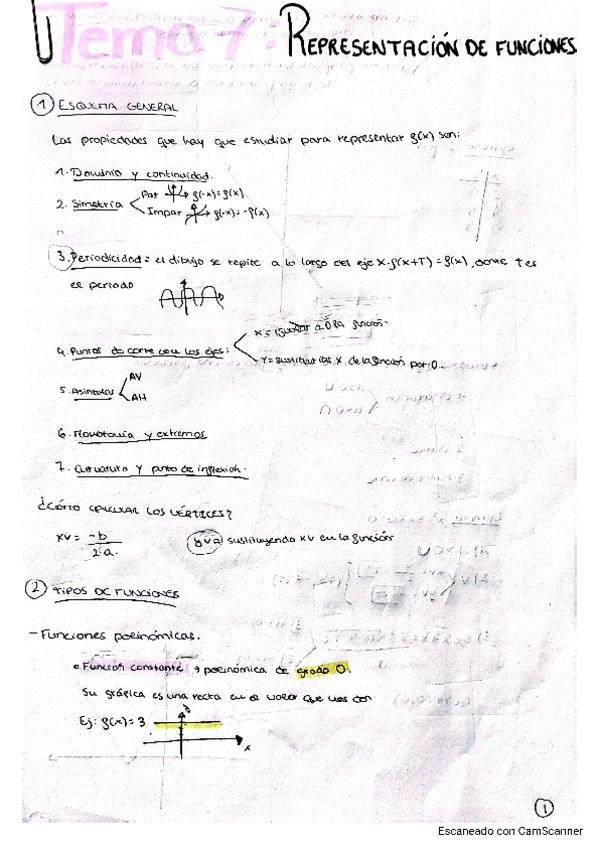 Tema 7: REPRESENTACIÓN DE FUNCIONES
① ESQUEMA GENERAL
Las propiedades que hay que estudiar para representar f(x) son:
1. Dominio y continuidad.
2. Simetría
Par → f(-x)=f(x)
Impar → f(-x)=-f(x)
3. Periodicidad = el dibujo se repite a lo largo del eje x. f(x+T)=f(x), donde T es
el periodo
4. Puntos de corte con los ejes:
X = igualar a 0 la función.
Y = sustituir las x de la función por 0.
5. Asíntotas
AV
AH
6. Monotonía y extremos
7. Curvatura y punto de inflexión.
¿CÓMO CALCULAR LOS VÉRTICES?
xv = -b
2·a.
yv = sustituyendo xv en la función
② TIPOS DE FUNCIONES
- Funciones polinómicas.
• Función constante → polinómica de grado 0.
Su gráfica es una recta en el valor que nos den
Ej: f(x)=3
y
x
1
Escaneado con CamScanner